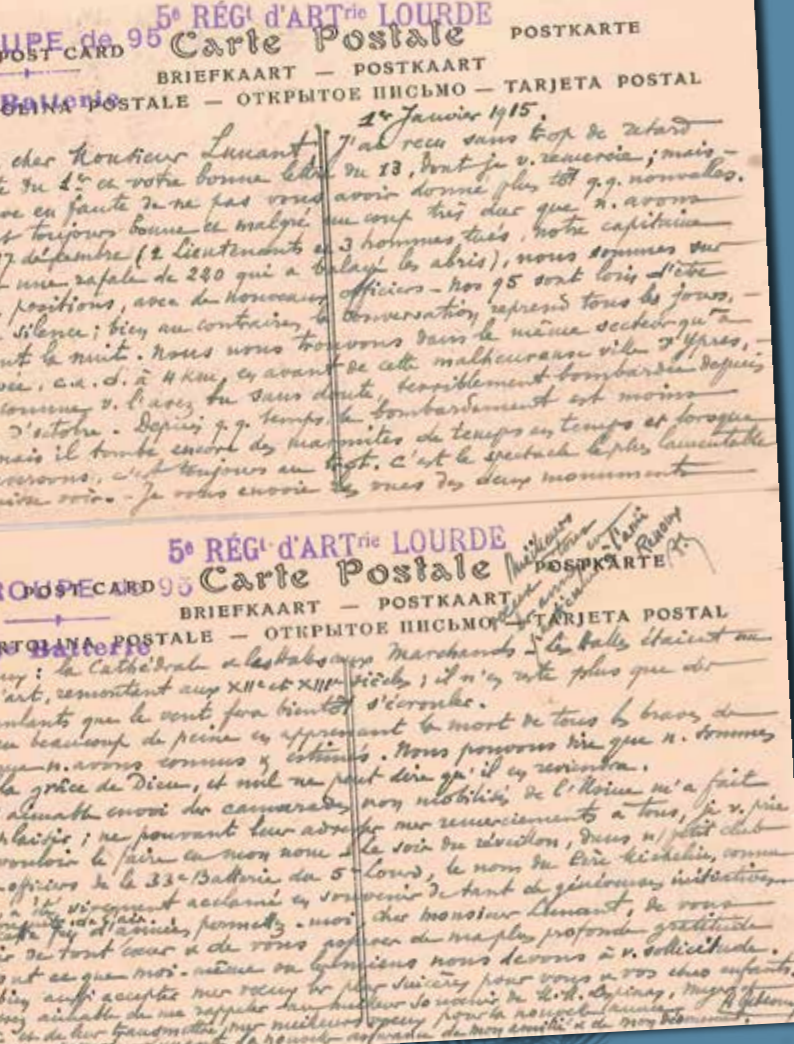 5e RÉGt d'ARTrie LOURDE
UPE de 95
POST CARD Carte Postale POSTKARTE
BRIEFKAART — POSTKAART
Batterie
OLINA POSTALE — ОТКРЫТОЕ ПИСЬМО — TARJETA POSTAL
1er Janvier 1915.
cher Monsieur Lunant, J'ai reçu sans trop de retard
du 1er et votre bonne lettre du 13, dont je v. remercie ; mais
en faute de ne pas vous avoir donné plus tôt q.q. nouvelles.
toujours bonne et malgré un coup très dur que n. avons
décembre (2 Lieutenants et 3 hommes tués, notre capitaine
une rafale de 220 qui a balayé les abris), nous sommes sur
positions, avec de nouveaux officiers – nos 95 sont loin d'être
silence ; bien au contraire, la conversation reprend tous les jours,
la nuit. Nous nous trouvons dans le même secteur qu'à
c.a.d. à 4 km, en avant de cette malheureuse ville d'Ypres,
comme v. l'avez lu sans doute, terriblement bombardée depuis
d'octobre. Depuis q.q. temps le bombardement est moins
mais il tombe encore des marmites de temps en temps et lorsque
c'est toujours au trot. C'est le spectacle le plus lamentable
voir. – Je vous envoie les vues des deux monuments
5e RÉGt d'ARTrie LOURDE
ROUPE de 95
POST CARD Carte Postale POSTKARTE
BRIEFKAART — POSTKAART
Batterie
RTOLINA POSTALE — ОТКРЫТОЕ ПИСЬМО — TARJETA POSTAL
la Cathédrale & les Halles aux Marchands – Les Halles étaient un
d'art, remontant aux XIIe et XIIIe siècles ; il n'en reste plus que des
que le vent fera bientôt s'écrouler.
beaucoup de peine en apprenant la mort de tous les braves de
que n. avons connus & estimés. Nous pouvons dire que n. sommes
la grâce de Dieu, et nul ne peut dire qu'il en reviendra.
aimable envoi des camarades non mobilisés de l'Usine m'a fait
plaisir ; ne pouvant leur adresser mes remerciements à tous, je v. prie
vouloir le faire en mon nom – Le soir du réveillon, dans n/ petit club
officiers de la 33e Batterie du 5e Lourd, le nom du Père Michelin, connu
a été vivement acclamé en souvenir de tant de généreuses initiatives
permettez-moi cher monsieur Lunant, de vous
de tout cœur & de vous assurer de ma plus profonde gratitude
ce que moi-même ou les miens nous devons à v. sollicitude.
bien aussi accepter mes vœux les plus sincères pour vous & vos chers enfants.
aimable de me rappeler au meilleur souvenir de M.M.
et de leur transmettre mes meilleurs vœux pour la nouvelle année
la nouvelle assurance de mon amitié & de mon dévouement.